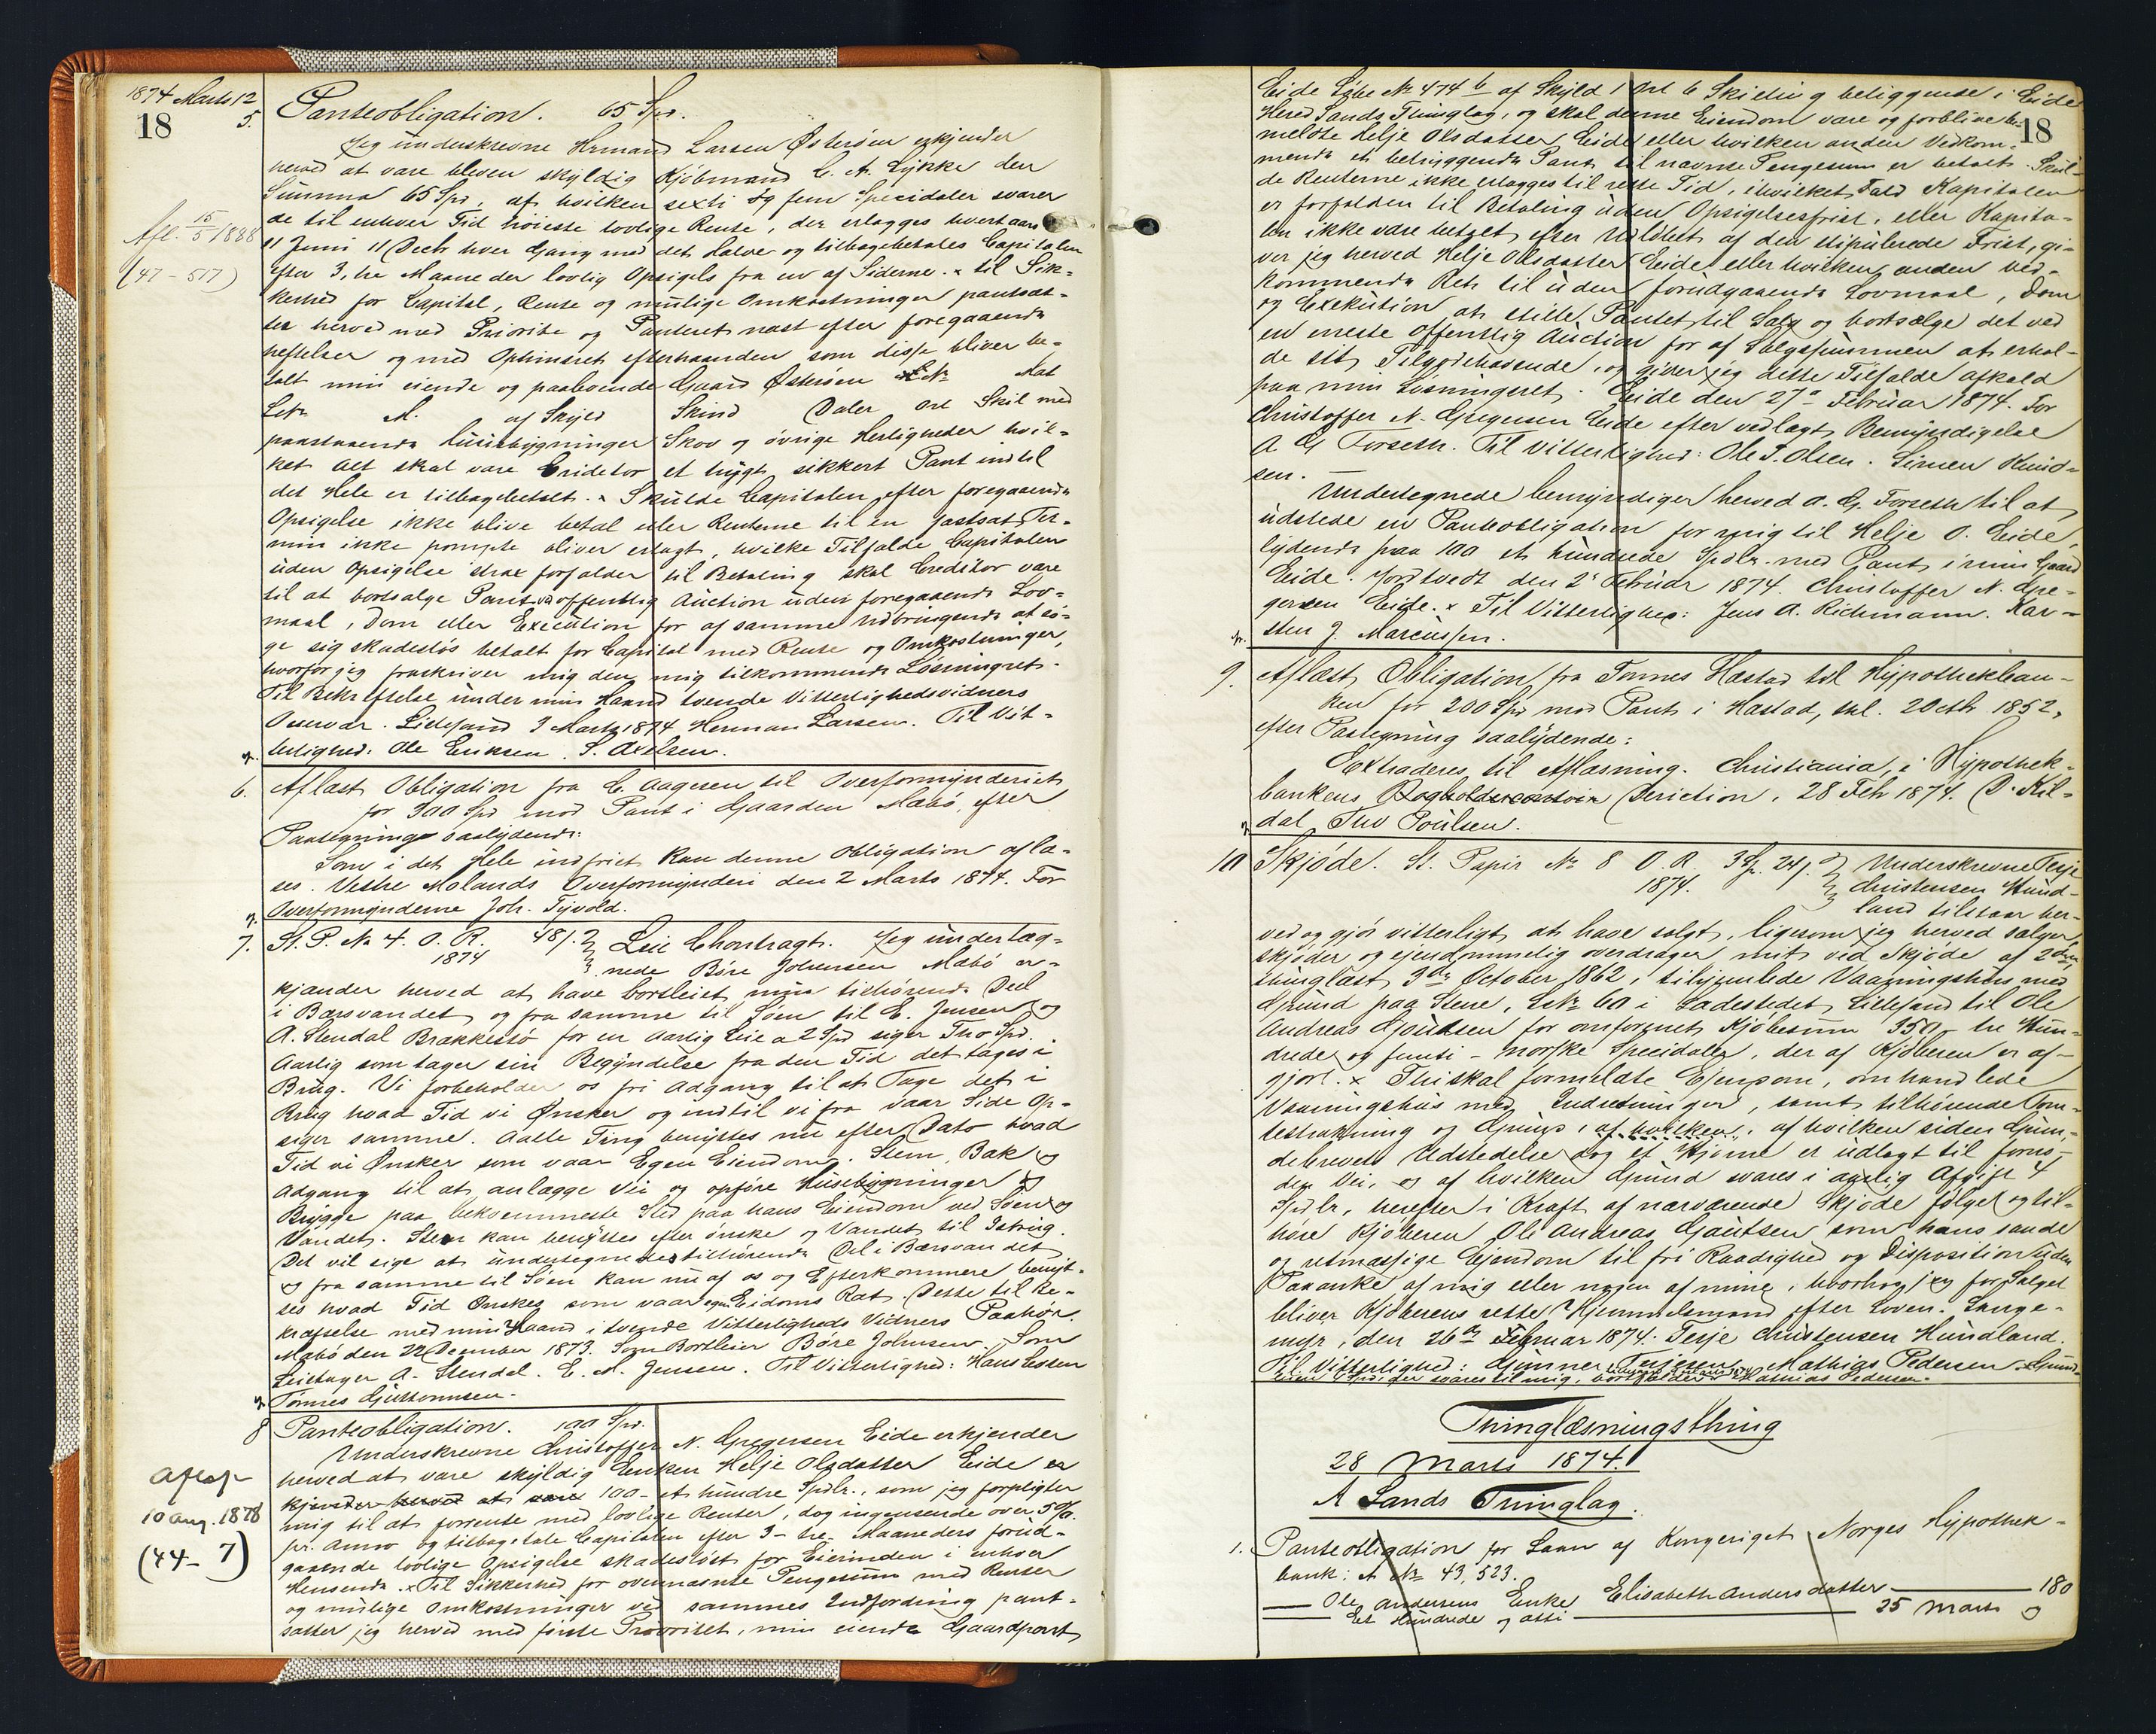 1874 Marts 12
18
5.
Panteobligation. 65 Spd.
Jeg underskrevne Hrmand Larsen Østerøen erkjender
herved at være bleven skyldig Kjöbmand C. A. Lykke den
Summa 65 Spd, af hvilken sexti og fem Specidaler svarer
de til enhver Tid höieste lovlige Rente, der erlægges hvert aar
11 Juni 11 Decb hver Gang med det halve og tilbagebetales Capitalen
efter 3, tre Maaneder lovlig Opsigels fra en af Siderne. x til Sik-
kerhed for Capital, Rente og mulige Omkostninger pantsæt-
tes herved med Priorite og Panteret næst efter foregaaende
heftelser og med Oprinsret efterhaanden som disse bliver be-
talt min eiende og paaboende Gaard Østerøen Mat
Lnr A. af Skyld Skind Daler Ort Skil med
paastaaende Huusebygninger Skov og övrige Herligheder hvil-
ket Alt skal være Creditor et trygt, sikkert Pant indtil
det Hele er tilbagebetalt. x Skulde Capitalen efter foregaaende
Opsigelse ikke blive betal eller Renterne til en fastsat Ter-
min ikke prompte bliver erlagt, hvilke Tilfælde Capitalen
uden Opsigelse strax forfalder til Betaling skal Creditor være
til at bortsælge Pant ved offentlig Auction uden foregaaende Lov-
maal, Dom eller Execution for af samme Udbringende at sö-
ge sig skadeslös betalt for Capital med Rente og Omkostninger,
hvorfor jeg fraskriver mig den mig tilkommende Lösningsret.
Til Bekræftelse under min Haand tvende Vitterlighedsvidners
Overvær. Lillesand 9 Marts 1874 Herman Larsen. Til Vit-
terlighed: Ole Eriksen. S. Axelsen.
Afl. 15/5 1888
(47 - 517)
6. Aflæst Obligation fra C. Aagesen til Overformynderiet
for 300 Spd mod Pant i Gaarden Mæbö, efter
Paategning saalydende:
Som i det Hele indfriet kan denne Obligation aflæ-
ses. Vestre Molands Overformynderi den 2 Marts 1874. For
Overformynderne Joh. Tijvold.
7. St. P. No 4. O. R. 48 /. Leie Chontragt. Jeg undertæg-
1874 nede Böre Johnsen Mæbö er-
kjænder herved at have bortleiet min tilhörende Deel
i Bærsvandet og fra samme til Söen til E. Jensen og
A. Stendal Brækkestö for en Aarlig Leie a 2 Spd siger Tho Spd.
Aarlig som tager sin Begyndelse fra den Tid det tages i
Brug. Vi forbeholder os fri Adgang til at Tage det i
Brug hvad Tid vi Ønsker og indtil vi fra vaar Side Op-
siger samme. Aalle Ting benyttes nu efter Dato hvad
Tid vi Ønsker som vaar Egen Eiendom. Stem, Bak og
Adgang til at anlægge Vei og opföre Huusebygninger og
Brygge paa bekvemmeste Sted paa hans Eiendom ved Söen og
Vandet. Stem kan benyttes efter önske og Vandet til Istrug.
Det vil sige at undertegnedes tilhörende Del i Bærsvandet
og fra samme til Söen kan nu af os og Efterkommere benyt-
tes hvad Tid Ønskes som vaar egen Eidoms Ret. Dette til Be-
kræftelse med min Haand i tvende Vitterligheds Vidners Paahör.
Mæbö den 22 December 1873. Som Bortleier Böre Johnsen. Som
Leietager A. Stendal. E. M. Jensen. Til Vitterlighed: Hans Essen
Tönnes Gjuttormsen.
8 Panteobligation. 100 Spd.
Underskrevne Christoffer N. Gregersen Eide erkjender
herved at være skyldig Enken Helje Olsdatter Eide er
kjender herved at være 100 - et hundre Spdlr., som jeg forpligter
mig til at forrente med lovlige Renter, dog ingensende over 5 %
pr. Anno og tilbagetale Capitalen efter 3 - tre Maaneders forud-
gaaende lovlige Opsigelse skadeslöst for Eierinden i enhver
Henseende. x Til Sikkerhed for ovennævnte Pengesum med Renter
og mulige Omkostninger ved sammes Indfordring pant-
sætter jeg herved med förste Prioritet, min eiende Gaardpart
Aflæst
10 Aug. 1878
(44 - 7)
18
Eide Löbe No 474 b af Skyld 1 Ort 6 Skilling beliggende i Eide
Hered Sands Thinglag, og skal denne Eiendom være og forblive be-
meldte Helje Olsdatter Eide eller hvilken anden Vedkom-
mende et betryggende Pant til nævnte Pengesum er betalt. Skul-
de Renterne ikke erlægges til rette Tid, i hvilket Fald Kapitalen
er forfalden til Betaling uden Opsigelsesfrist, eller Kapita-
len ikke være betalt efter Udlöbet af den stipulerede Frist, gi-
ver jeg herved Helje Olsdatter Eide eller hvilken anden Ved-
kommende Ret til uden forudgaaende Lovmaal, Dom
og Exekution at stille Pantet til Salg og bortsælge det ved
en eneste offentlig Auction for af Salgssummen at erhol-
de sit Tilgodehavende, og giver jeg dette Tilfælde afkald
paa min Lösningsret. Eide den 27de Februar 1874. For
Christoffer N. Gregersen Eide efter vedlagt Bemyndigelse
A G Forseth. Til Vitterlighed: Ole T. Olsen. Simen Knud-
sen.
Undertegnede bemyndiger herved A. G. Forseth til at
udstede en Panteobligation for mig til Helje O. Eide,
lydende paa 100 et hundrede Spdlr. med Pant i min Gaard
Eide. den 2 Februar 1874. Christoffer N. Gre-
gersen Eide. x Til Vitterlighed: Jens A. Richmann. Kar-
sten J. Marcussen.
9. Aflæst Obligation fra Tönnes Hæstad til Hypothekban-
ken for 200 Spd mod Pant i Hæstad, tgl. 2 Octb 1852,
efter Paategning saalydende:
Extraderes til Aflæsning. Christiania, i Hypothek-
bankens Bogholdercontoir Deriction, 28 Feb 1874. D. Kil-
dal Thv Poulsen.
10 Skjöde. St. Papir No 8 O. R. 3 Sp. 24 /. Underskrevne Terje
1874. Christensen Hund-
land tilstaar her-
ved og gjör vitterligt at have solgt, ligesom jeg herved sælger,
skjöder og ejendommelig overdrager mit ved Skjöde af 2den
tinglæst 3die October 1862, tilhjemlede Vaaningshus med
Grund paa Stene, LNr. 60 i Ladestedet Lillesand til Ole
Andreas Gjöutsen for omforenet Kjöbesum 350 - tre Hun-
drede og femti - norske Specidaler, der af Kjöberen er af-
gjort. x Thi skal formeldte Ejendom, omhandlede
Vaaningshus med Indretninger, samt tilhörende Tom-
testrækning og Grund, af hvilken, af hvilken siden Grun-
debrevets Udstedelse dog et Hjörne er udlagt til forno-
den Vei, og af hvilken Grund svares i aarlig Afgift 4
Spdlr, herefter i Kraft af nærværende Skjöde fölge og til-
höre Kjöberen Ole Andreas Gautsen som hans sande
og retmæssige Ejendom til fri Raadighed og Disposition uden
Paaanke af mig eller nogen af mine, hvorhos jeg for Salget
bliver Kjöberens rette Hjemmelsmand efter Loven. Lange-
myr, den 26de Februar 1874. Terje Christensen Hundland.
Til Vitterlighed: Gunner Terjesen. Mathias Pedersen. Grund-
Mathias Pedersen.
Thinglæsningsthing
28 Marts 1874.
A Sands Thinglag.
1. Panteobligation for Laan af Kongeriget Norges Hypothek-
bank: A No 43,523.
Ole Andersens Enke Elisabeth Andersdatter 180
Et Hundrede og otti 25 Marts og